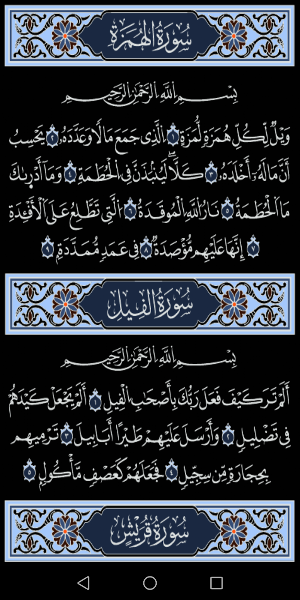 سُورَةُ الهُمَزَةِ
بِسْمِ اللَّهِ الرَّحْمَٰنِ الرَّحِيمِ
وَيْلٌ لِّكُلِّ هُمَزَةٍ لُّمَزَةٍ ١ الَّذِى جَمَعَ مَالًا وَعَدَّدَهُۥ ٢ يَحْسَبُ
أَنَّ مَالَهُۥٓ أَخْلَدَهُۥ ٣ كَلَّا ۖ لَيُنۢبَذَنَّ فِى الْحُطَمَةِ ٤ وَمَآ أَدْرَىٰكَ
مَا الْحُطَمَةُ ٥ نَارُ اللَّهِ الْمُوقَدَةُ ٦ الَّتِى تَطَّلِعُ عَلَى الْأَفْـِٔدَةِ
٧ إِنَّهَا عَلَيْهِم مُّؤْصَدَةٌ ٨ فِى عَمَدٍ مُّمَدَّدَةٍۭ ٩
سُورَةُ الفِيلِ
بِسْمِ اللَّهِ الرَّحْمَٰنِ الرَّحِيمِ
أَلَمْ تَرَ كَيْفَ فَعَلَ رَبُّكَ بِأَصْحَٰبِ الْفِيلِ ١ أَلَمْ يَجْعَلْ كَيْدَهُمْ
فِى تَضْلِيلٍ ٢ وَأَرْسَلَ عَلَيْهِمْ طَيْرًا أَبَابِيلَ ٣ تَرْمِيهِم
بِحِجَارَةٍ مِّن سِجِّيلٍ ٤ فَجَعَلَهُمْ كَعَصْفٍ مَّأْكُولٍۭ ٥
سُورَةُ قُرَيْشٍ